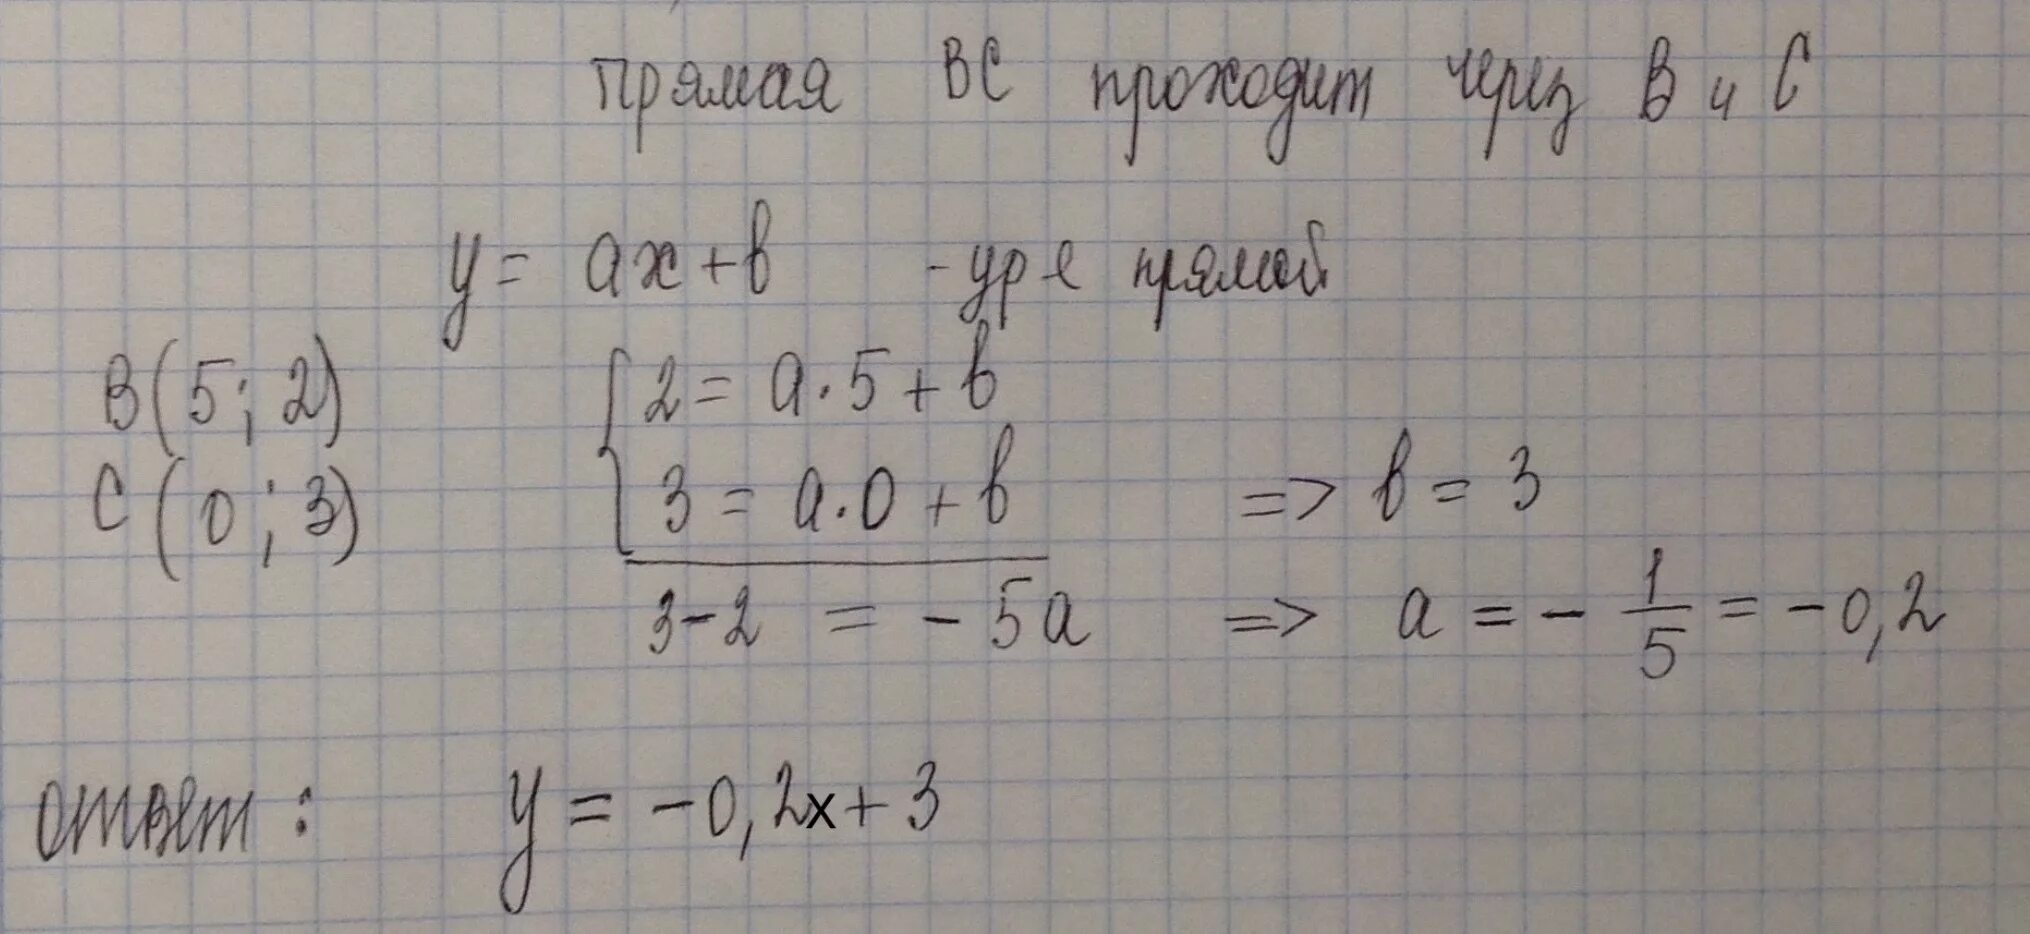 прямая BC проходит через B и C
y = ax + b - ур-е прямой
B(5; 2) { 2 = a·5 + b
C(0; 3) 3 = a·0 + b => b = 3
3-2 = -5a => a = - 1/5 = -0,2
ответ: y = -0,2x + 3